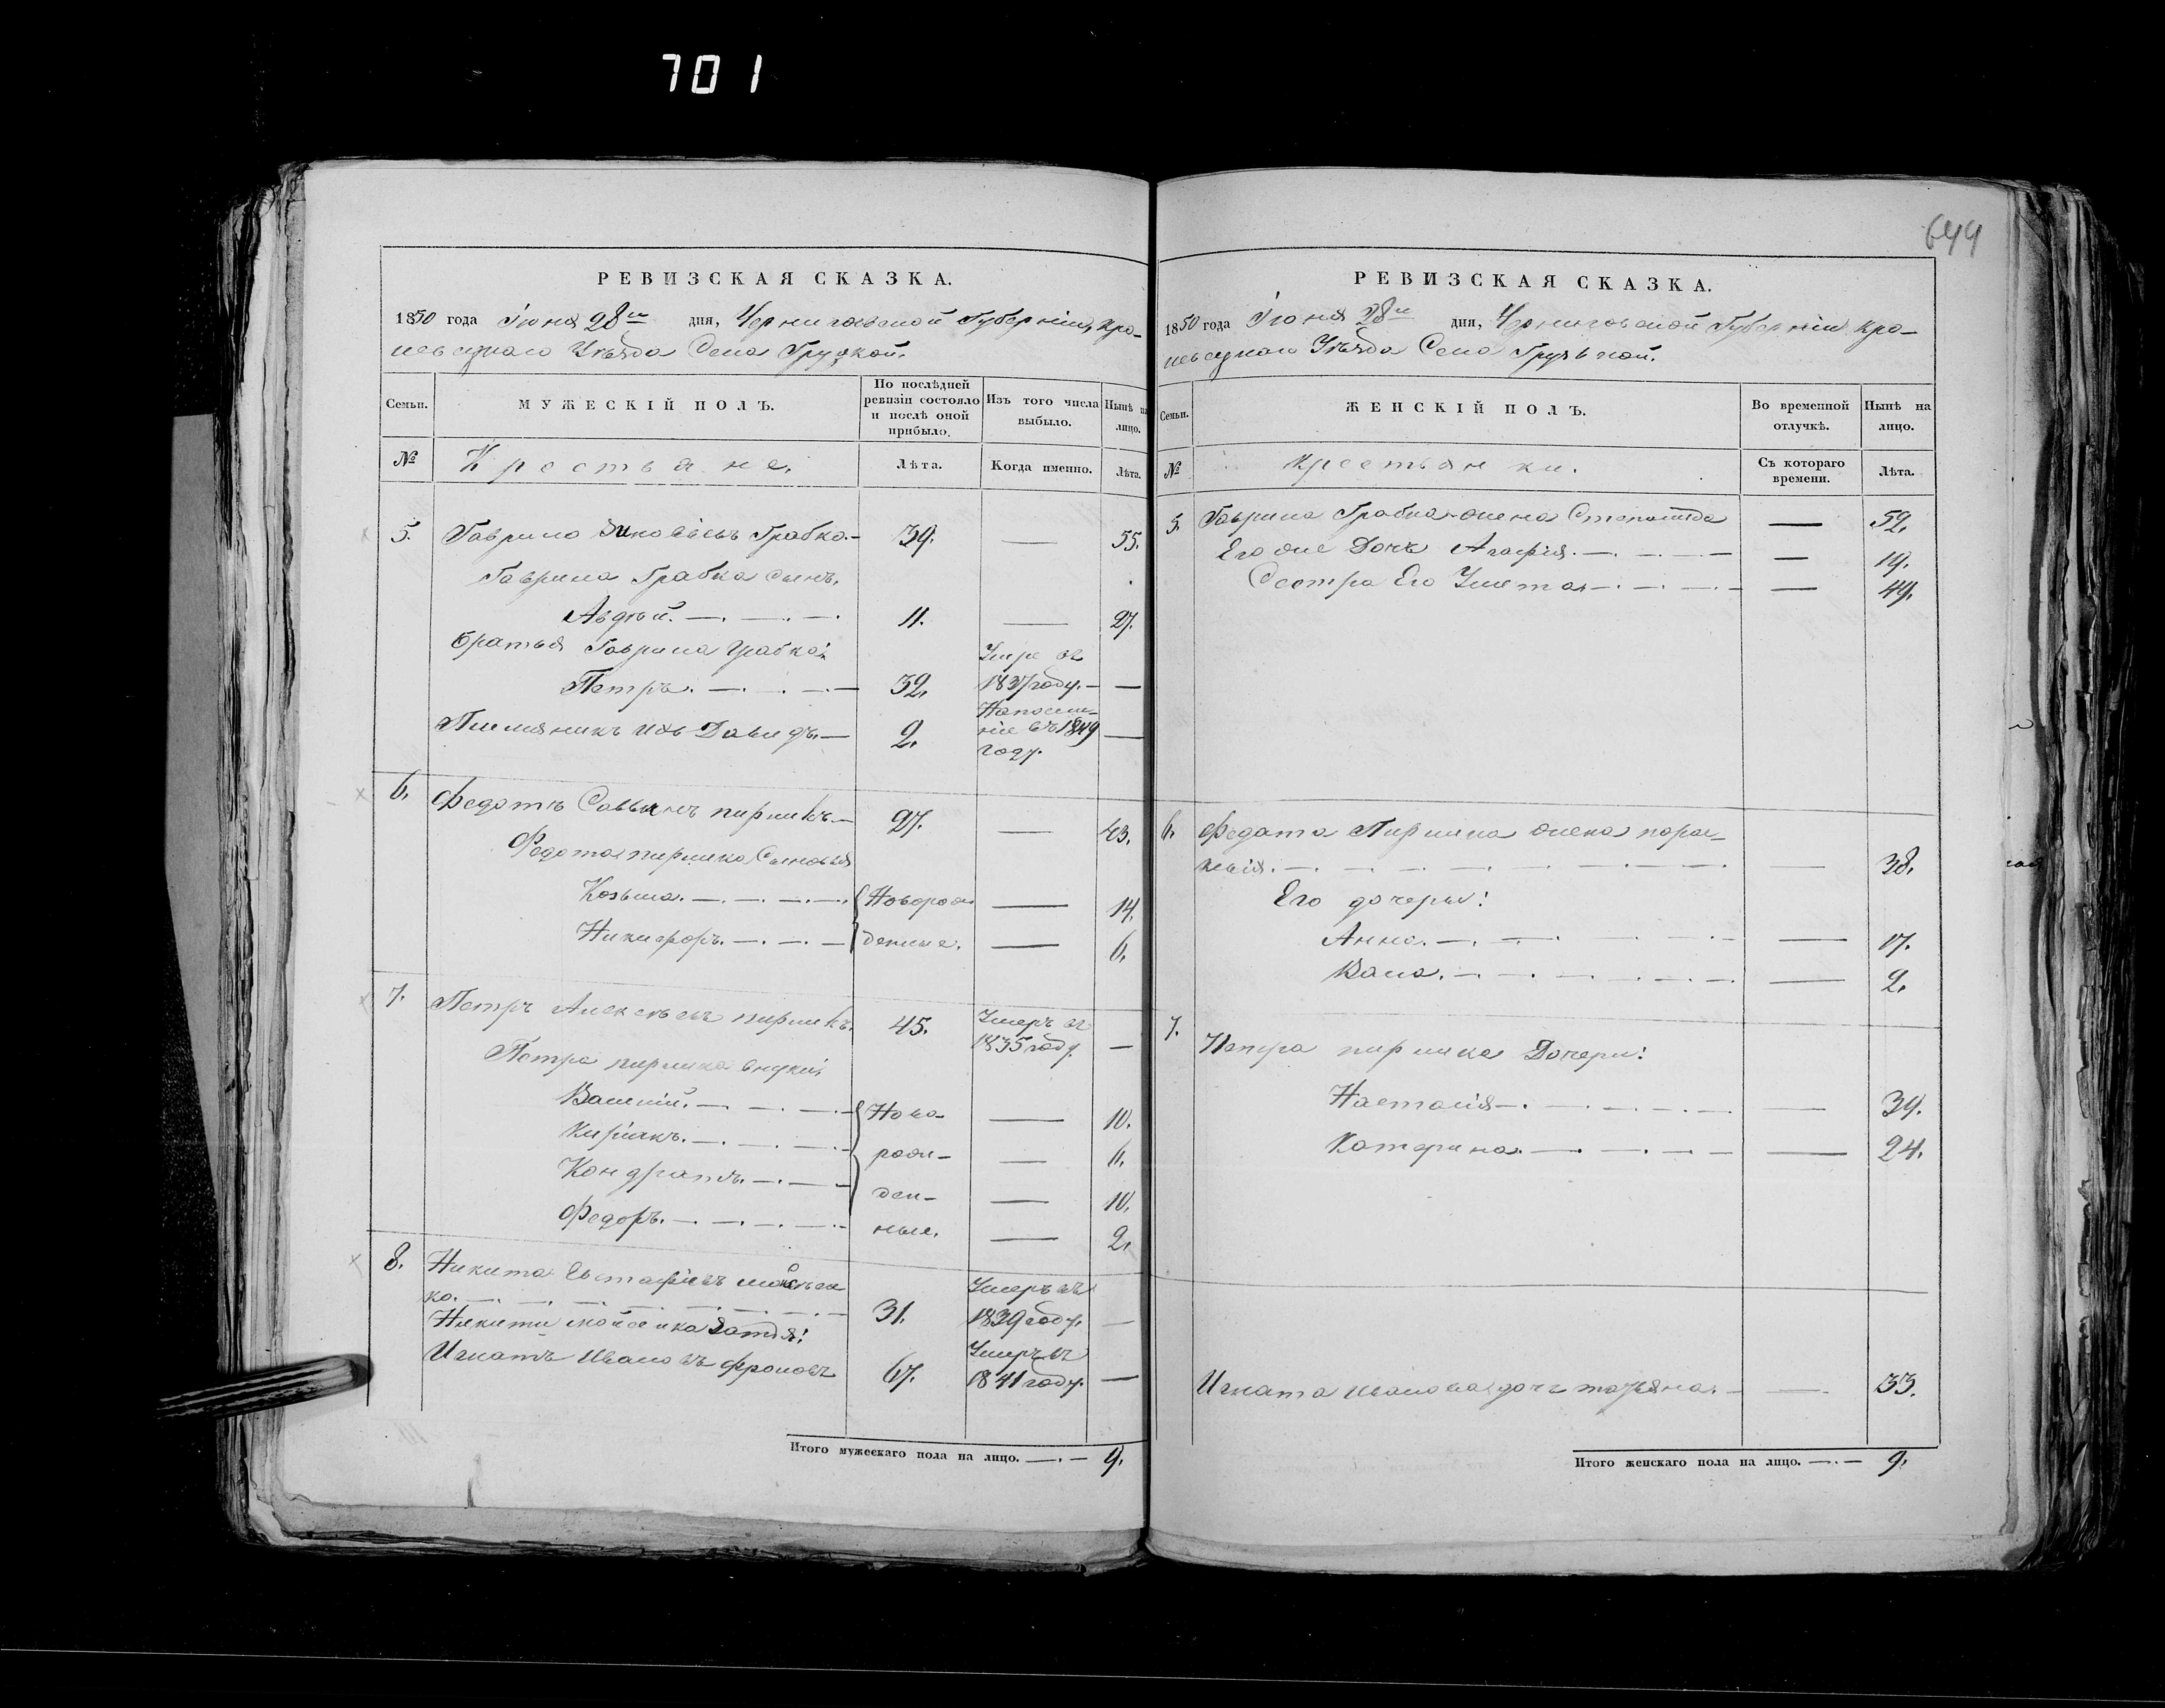 701
644
РЕВИЗСКАЯ СКАЗКА.
1850 года Іюня 28го дня, Черниговской Губерніи, Кро-
левецкаго Уѣзда Села Грузкой.
Семьи.
МУЖЕСКІЙ ПОЛЪ.
По послѣдней ревизіи состояло и послѣ оной прибыло.
Изъ того числа выбыло.
Нынѣ на лицо.
№
Крестьяне.
Лѣта.
Когда именно.
Лѣта.
5. Гаврило Зиновіевъ Грабко.— 39. — 55.
Гаврила Грабка сынъ.
Авдѣй. 11. — 27.
братья Гаврила Грабка:
Петръ. 32. Умре въ 1837 году. —
Племяникъ ихъ Давидъ. 2. На поселеніе въ 1849 году. —
6. Федотъ Саввинъ пирникъ 27. — 43.
Федота пирника Сыновья
Козьма. Новорож- — 14.
Никифоръ. денные. — 6.
7. Петръ Алексѣевъ пирникъ. 45. Умеръ въ 1835 году —
Петра пирника внуки:
Василій. Ново- — 10.
Киріакъ. рож- — 11.
Кондратъ. ден- — 10.
Федоръ. ные. — 2.
8. Никита Евстафіевъ
ко. 31. Умеръ въ 1839 году. —
Никиты Мойсенка Затья:
Игнатъ Ивановъ фроловъ 67. Умеръ въ 1841 году. —
Итого мужескаго пола на лицо. — 9.
РЕВИЗСКАЯ СКАЗКА.
1850 года Іюня 28го дня, Черниговской Губерніи Кро-
левецкаго Уѣзда Села Грузкой.
Семьи.
ЖЕНСКІЙ ПОЛЪ.
Во временной отлучкѣ.
Нынѣ на лицо.
№
Крестьянки.
Съ котораго времени.
Лѣта.
5. Гаврила Грабка жена Степанида — 52.
Его же Дочь Агафія. — 19.
Сестра Его Улита — 49.
6. Федота Пирника жена порас-
кевія. — 38.
Его дочеры:
Анна. — 17.
Васа. — 2.
7. Петра пирника Дочери:
Настасія — 39.
Катерина. — 24.
Игната Иванова дочь татьяна. — 33.
Итого женскаго пола на лицо. — 9.